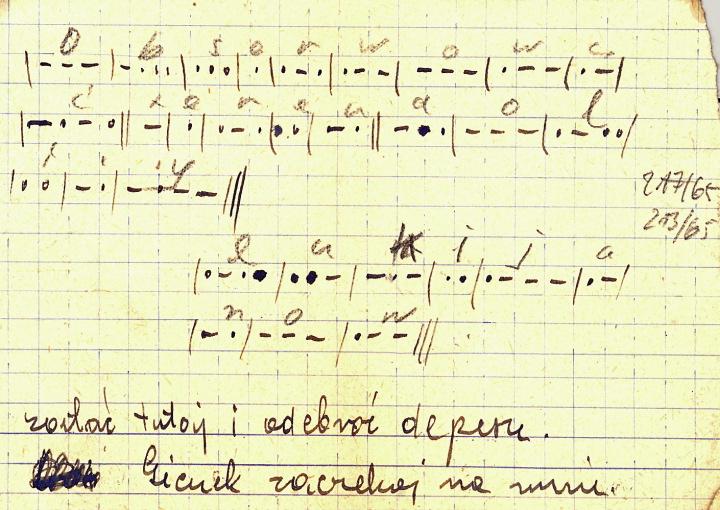 O b s e r w o w a
|---|-...|...|.|.-.|.--|---|.--|.-|
ć t e r e n d o l
|-.-.||-|.|.-.|..|-.||-..|---|.-..|
i n y
|..|-.|-.--|||
217/65
213/65
l u k i j a
|.-..|..-|-.-|..|.---|.-|
n o w
|-.|---|.--|||
zostać tutaj i odebrać depesze.
Gienek zaczekaj na mnie.